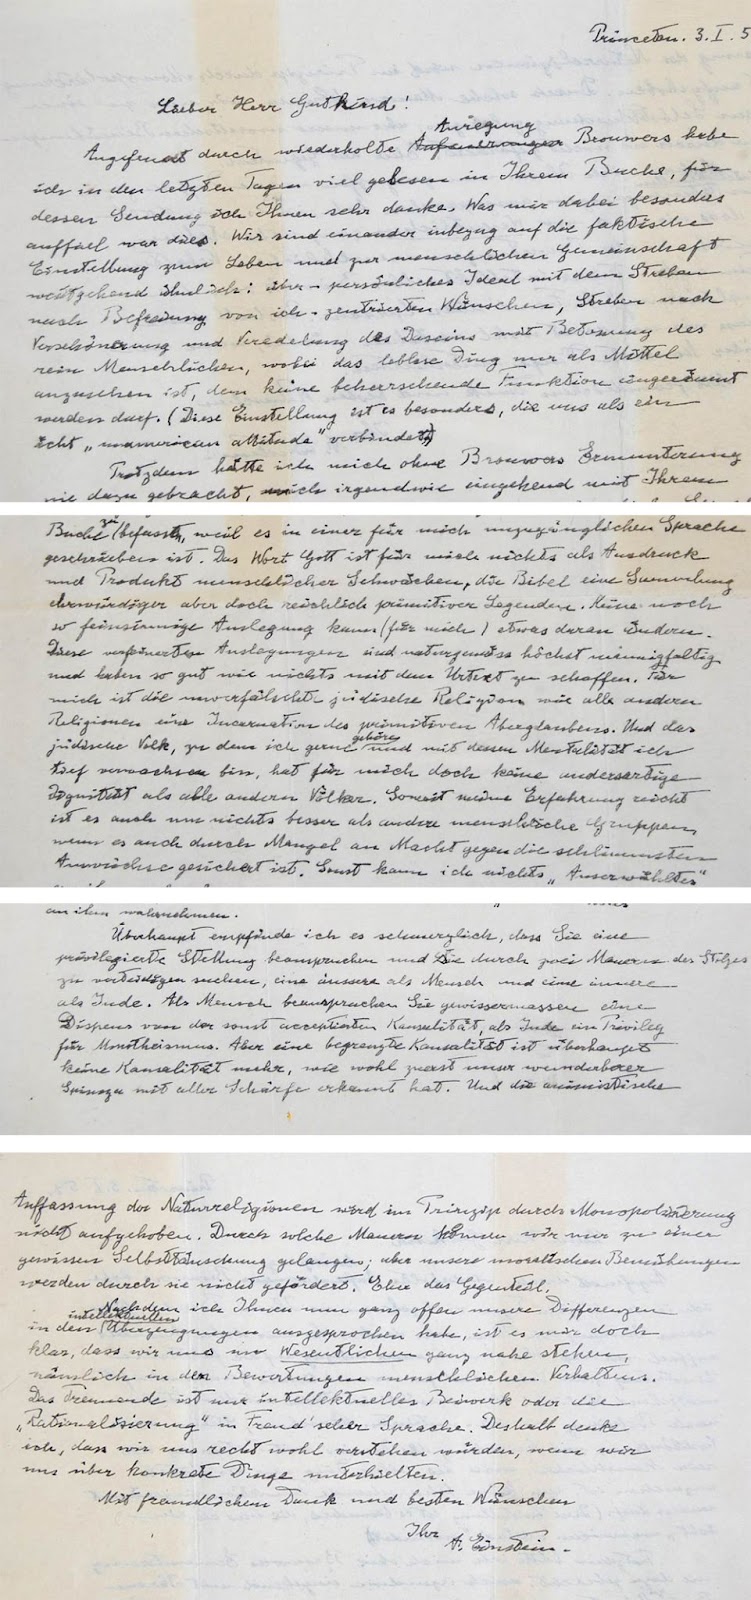 Princeton. 3. I. 5
Lieber Herr Gutkind!
Anregung
Angefeuert durch wiederholte Brouwers habe
ich in den letzten Tagen viel gelesen in Ihrem Buche, für
dessen Sendung ich Ihnen sehr danke. Was mir dabei besonders
auffiel war dies. Wir sind einander inbezug auf die faktische
Einstellung zum Leben und zur menschlichen Gemeinschaft
weitgehend ähnlich: über-persönliches Ideal mit dem Streben
nach Befreiung von ich-zentrierten Wünschen, Streben nach
Verschönerung und Veredelung des Daseins mit Betonung des
rein Menschlichen, wobei das leblose Ding nur als Mittel
anzusehen ist, dem keine beherrschende Funktion eingeräumt
werden darf. (Diese Einstellung ist es besonders, die uns als ein
echt „unamerican attitude" verbindet.)
Trotzdem hätte ich mich ohne Brouwers Ermunterung
nie dazu gebracht, mich irgendwie eingehend mit Ihrem
Buche zu befassen, weil es in einer für mich unzugänglichen Sprache
geschrieben ist. Das Wort Gott ist für mich nichts als Ausdruck
und Produkt menschlicher Schwächen, die Bibel eine Sammlung
ehrwürdiger aber doch reichlich primitiver Legenden. Keine noch
so feinsinnige Auslegung kann (für mich) etwas daran ändern.
Diese verfeinerten Auslegungen sind naturgemäss höchst mannigfaltig
und haben so gut wie nichts mit dem Urtext zu schaffen. Für
mich ist die unverfälschte jüdische Religion wie alle anderen
Religionen eine Incarnation des primitiven Aberglaubens. Und das
jüdische Volk, zu dem ich gerne gehöre und mit dessen Mentalität ich
tief verwachsen bin, hat für mich doch keine andersartige
Dignität als alle andern Völker. Soweit meine Erfahrung reicht
ist es auch um nichts besser als andere menschliche Gruppen,
wenn es auch durch Mangel an Macht gegen die schlimmsten
Auswüchse gesichert ist. Sonst kann ich nichts „Auserwähltes"
an ihm wahrnehmen.
Überhaupt empfinde ich es schmerzlich, dass Sie eine
privilegierte Stellung beanspruchen und sie durch zwei Mauern des Stolzes
zu verteidigen suchen, eine äussere als Mensch und eine innere
als Jude. Als Mensch beanspruchen Sie gewissermassen eine
Dispens von der sonst acceptierten Kausalität, als Jude ein Privileg
für Monotheismus. Aber eine begrenzte Kausalität ist überhaupt
keine Kausalität mehr, wie wohl zuerst unser wunderbarer
Spinoza mit aller Schärfe erkannt hat. Und die animistische
Auffassung der Naturreligionen wird im Prinzip durch Monopolisierung
nicht aufgehoben. Durch solche Mauern können wir nur zu einer
gewissen Selbsttäuschung gelangen; aber unsere moralischen Bemühungen
werden durch sie nicht gefördert. Eher das Gegenteil.
Nachdem ich Ihnen nun ganz offen unsere Differenzen
in den intellektuellen Überzeugungen ausgesprochen habe, ist es mir doch
klar, dass wir uns im Wesentlichen ganz nahe stehen,
nämlich in den Bewertungen menschlichen Verhaltens.
Das Trennende ist nur intellektuelles Beiwerk oder die
„Rationalisierung" in Freud'scher Sprache. Deshalb denke
ich, dass wir uns recht wohl verstehen würden, wenn wir
uns über konkrete Dinge unterhielten.
Mit freundlichem Dank und besten Wünschen
Ihr
A. Einstein.